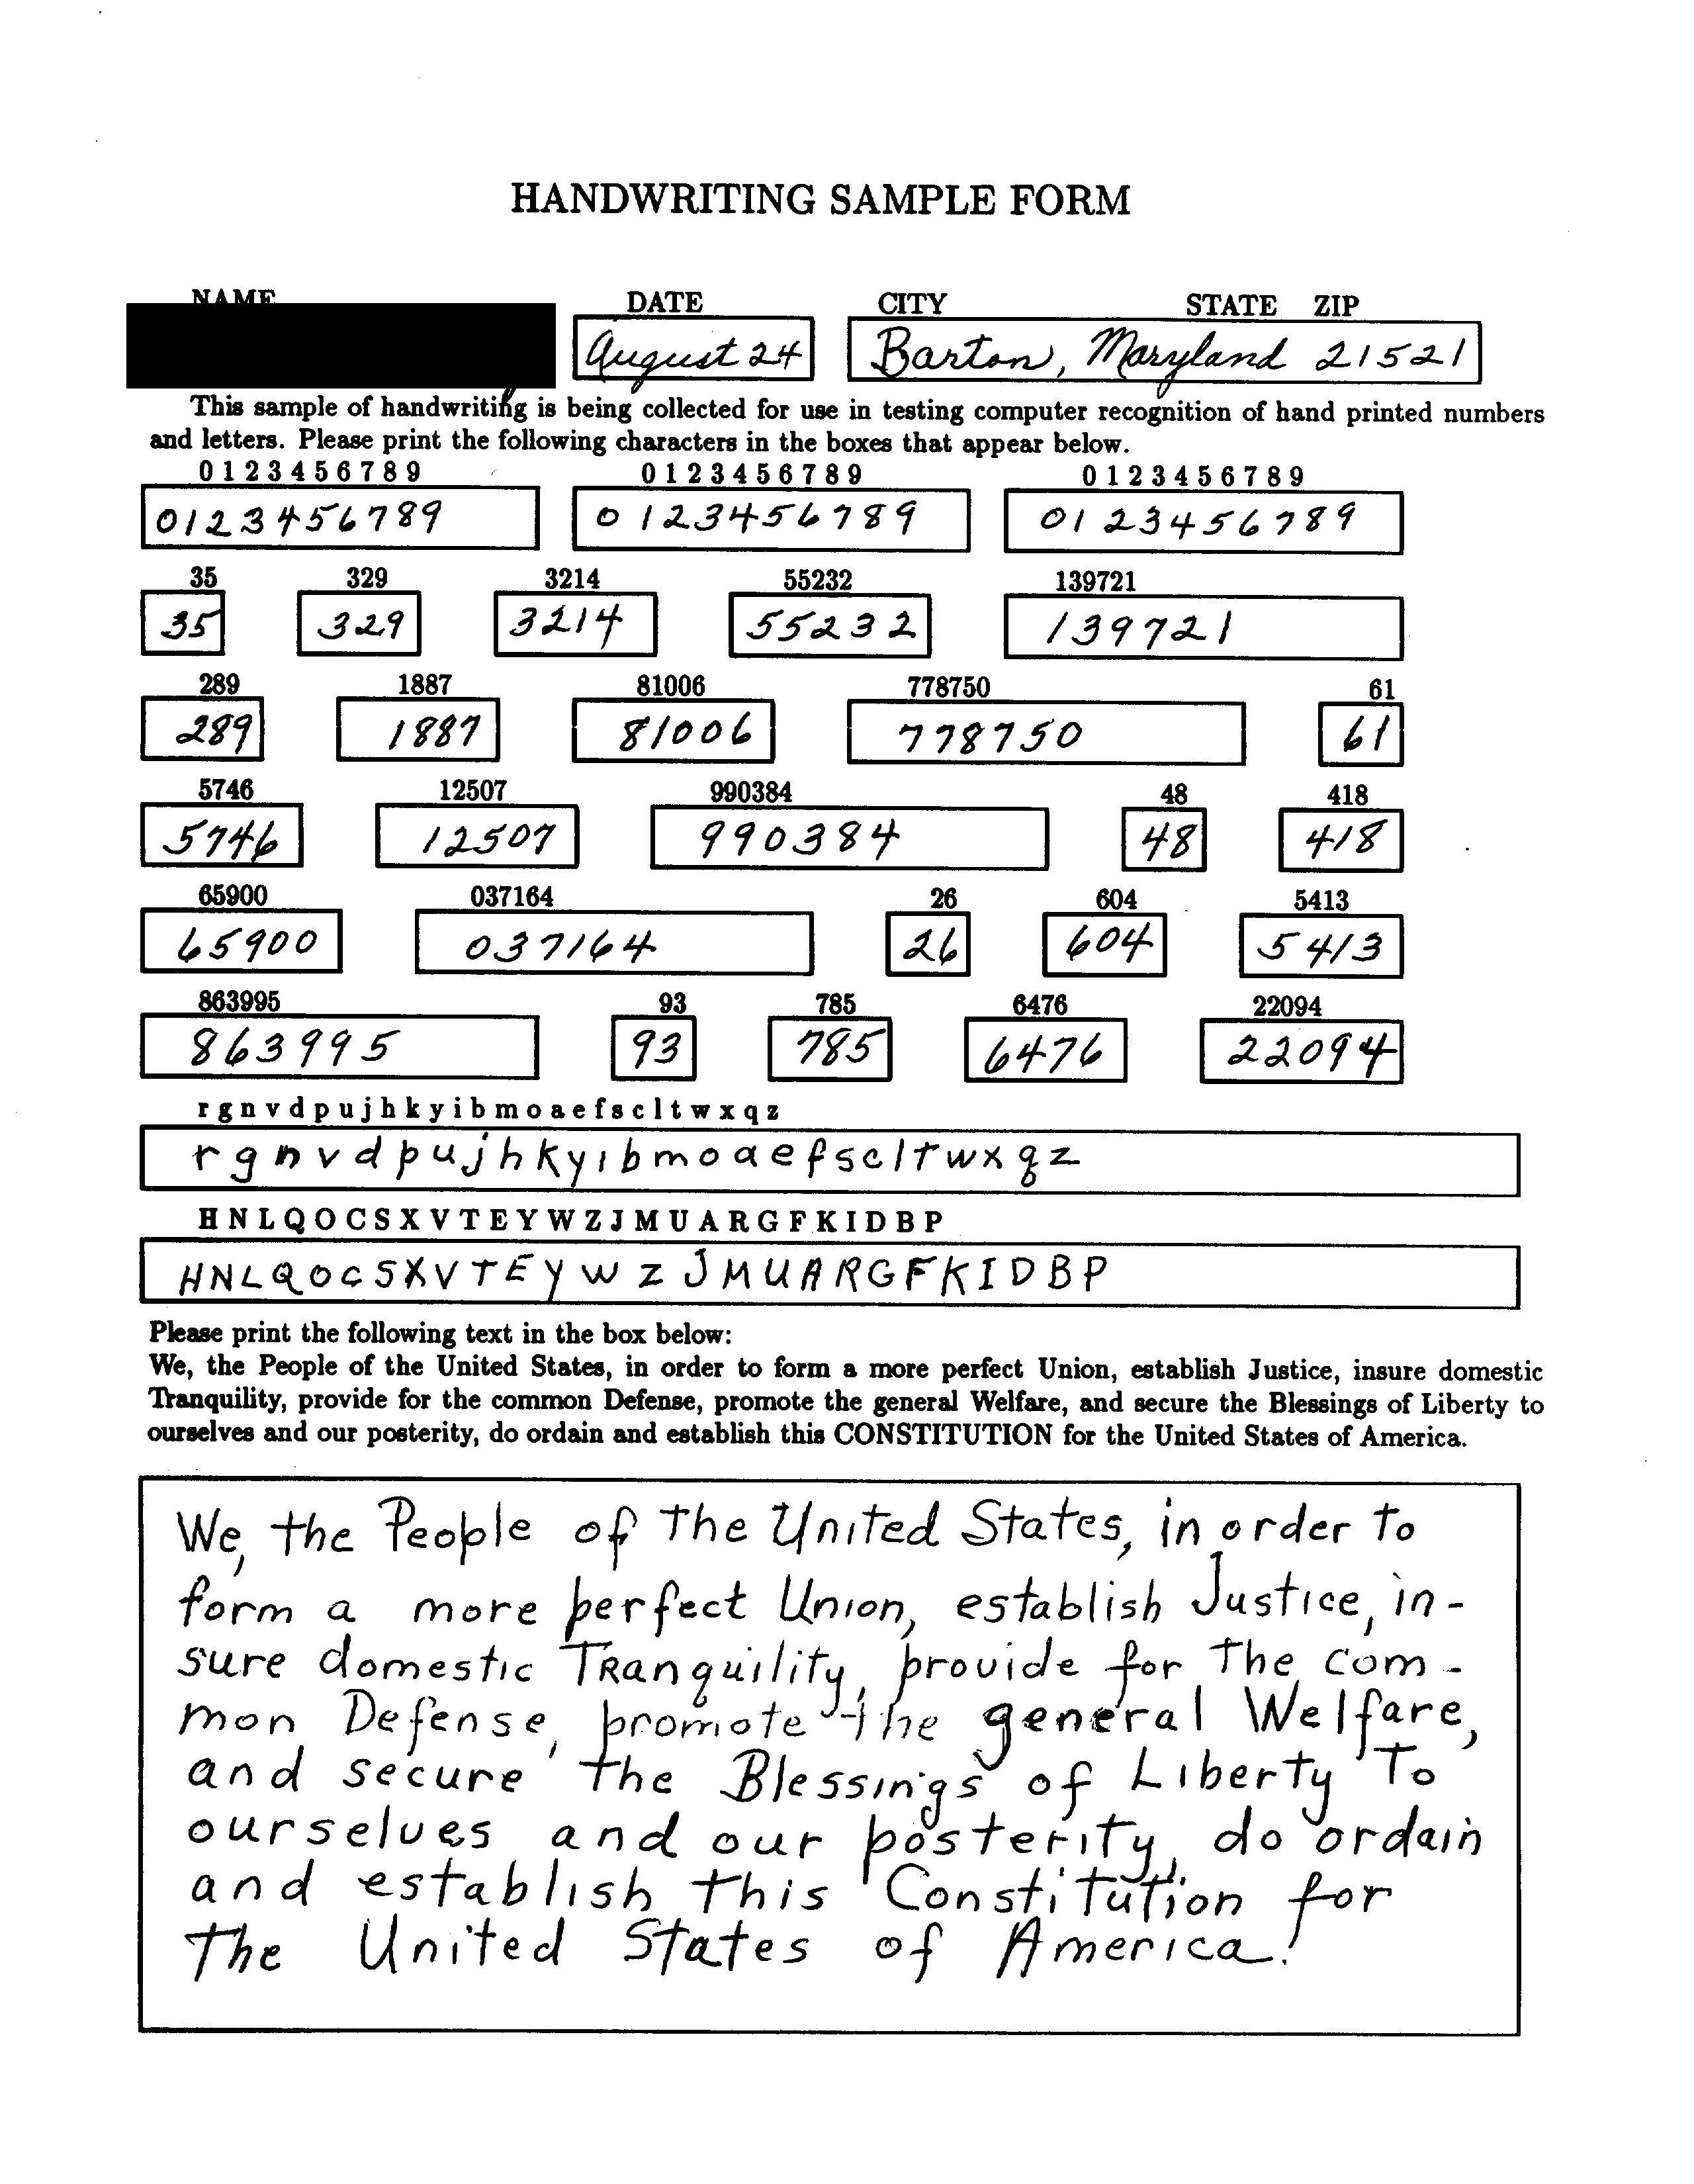 HANDWRITING SAMPLE FORM
NAME DATE CITY STATE ZIP
August 24 Barton, Maryland 21521
This sample of handwriting is being collected for use in testing computer recognition of hand printed numbers
and letters. Please print the following characters in the boxes that appear below.
0 1 2 3 4 5 6 7 8 9 0 1 2 3 4 5 6 7 8 9 0 1 2 3 4 5 6 7 8 9
0123456789 0123456789 0123456789
35 329 3214 55232 139721
35 329 3214 55232 139721
289 1887 81006 778750 61
289 1887 81006 778750 61
5746 12507 990384 48 418
5746 12507 990384 48 418
65900 037164 26 604 5413
65900 037164 26 604 5413
863995 93 785 6476 22094
863995 93 785 6476 22094
r g n v d p u j h k y i b m o a e f s c l t w x q z
r g n v d p u j h k y i b m o a e f s c l t w x q z
H N L Q O C S X V T E Y W Z J M U A R G F K I D B P
H N L Q O C S X V T E Y W Z J M U A R G F K I D B P
Please print the following text in the box below:
We, the People of the United States, in order to form a more perfect Union, establish Justice, insure domestic
Tranquility, provide for the common Defense, promote the general Welfare, and secure the Blessings of Liberty to
ourselves and our posterity, do ordain and establish this CONSTITUTION for the United States of America.
We, the People of the United States, in order to
form a more perfect Union, establish Justice, in-
sure domestic Tranquility, provide for the com-
mon Defense, promote the general Welfare,
and secure the Blessings of Liberty To
ourselves and our posterity, do ordain
and establish this Constitution for
the United States of America.